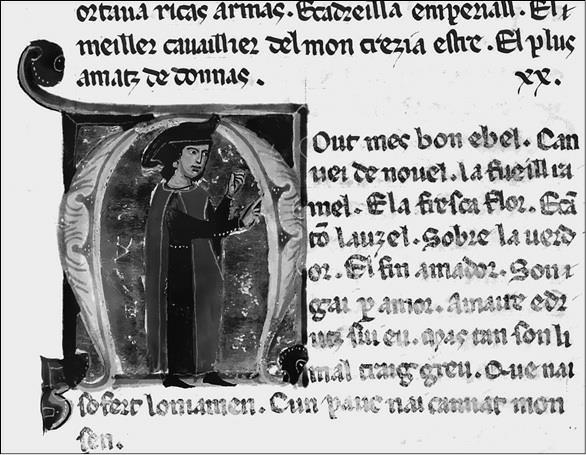 ortaua ricas armas. Ecadreilla emperiall. El
meiller cauaillier del mon crezia estre. El plus
amatz de donnas.
xx.
Out mes bon ebel. Can
uei de nouel. la fueill
mel. E la fresca flor. Ecā
tō lauzel. Sobre la uerd
or. El fin amador. Son
gai p amor. Amaire e dr
utz sui eu. Mas tan son li
mal trag greu. Que nai
sofert loniamen. Cun pauc nai camiat mon
sen.